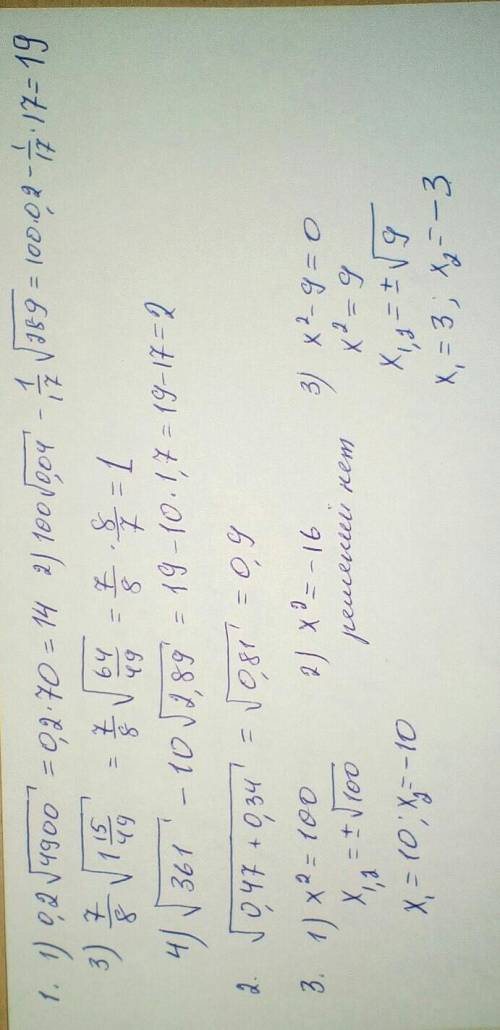 1. 1) 0,2√4900 = 0,2·70 = 14 2) 100√0,04 - 1/17 √289 = 100·0,2 - 1/17 · 17 = 19
3) 7/8 √1 15/49 = 7/8 √64/49 = 7/8 · 8/7 = 1
4) √361 - 10√2,89 = 19 - 10·1,7 = 19 - 17 = 2
2. √0,47 + 0,34 = √0,81 = 0,9
3. 1) x² = 100 2) x² = -16 3) x² - 9 = 0
x₁,₂ = ±√100 решений нет x² = 9
x₁ = 10; x₂ = -10 x₁,₂ = ±√9
x₁ = 3; x₂ = -3